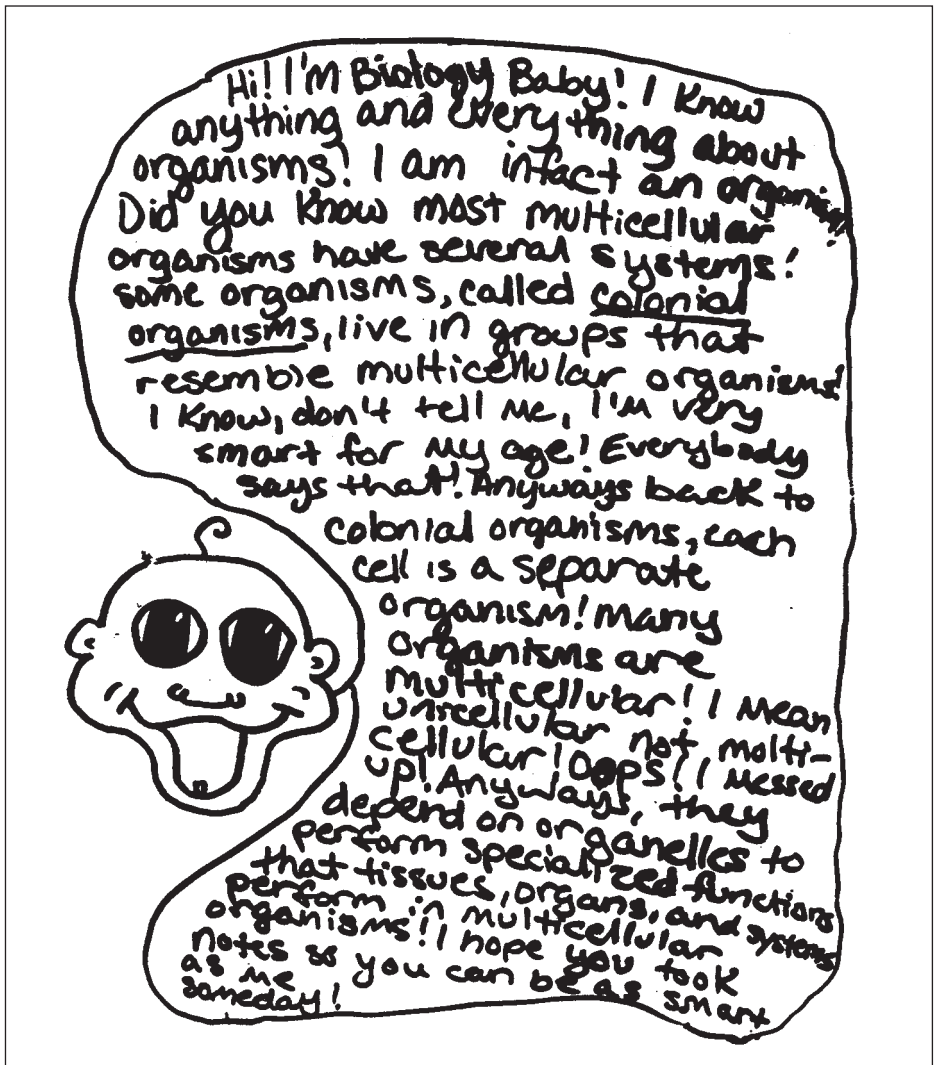 Hi! I'm Biology Baby! I know
anything and everything about
organisms! I am infact an organism!
Did you know most multicellular
organisms have several systems!
some organisms, called colonial
organisms, live in groups that
resemble multicellular organisms!
I know, don't tell me, I'm very
smart for my age! Everybody
says that! Anyways back to
colonial organisms, each
cell is a separate
organism! many
organisms are
multicellular! I mean
unicellular not molti-
cellular! Oops! I messed
up! Anyways, they
depend on organelles to
perform specialized functions
that tissues, organs, and systems
perform in multicellular
organisms! I hope you took
notes so you can be as smart
as me
someday!